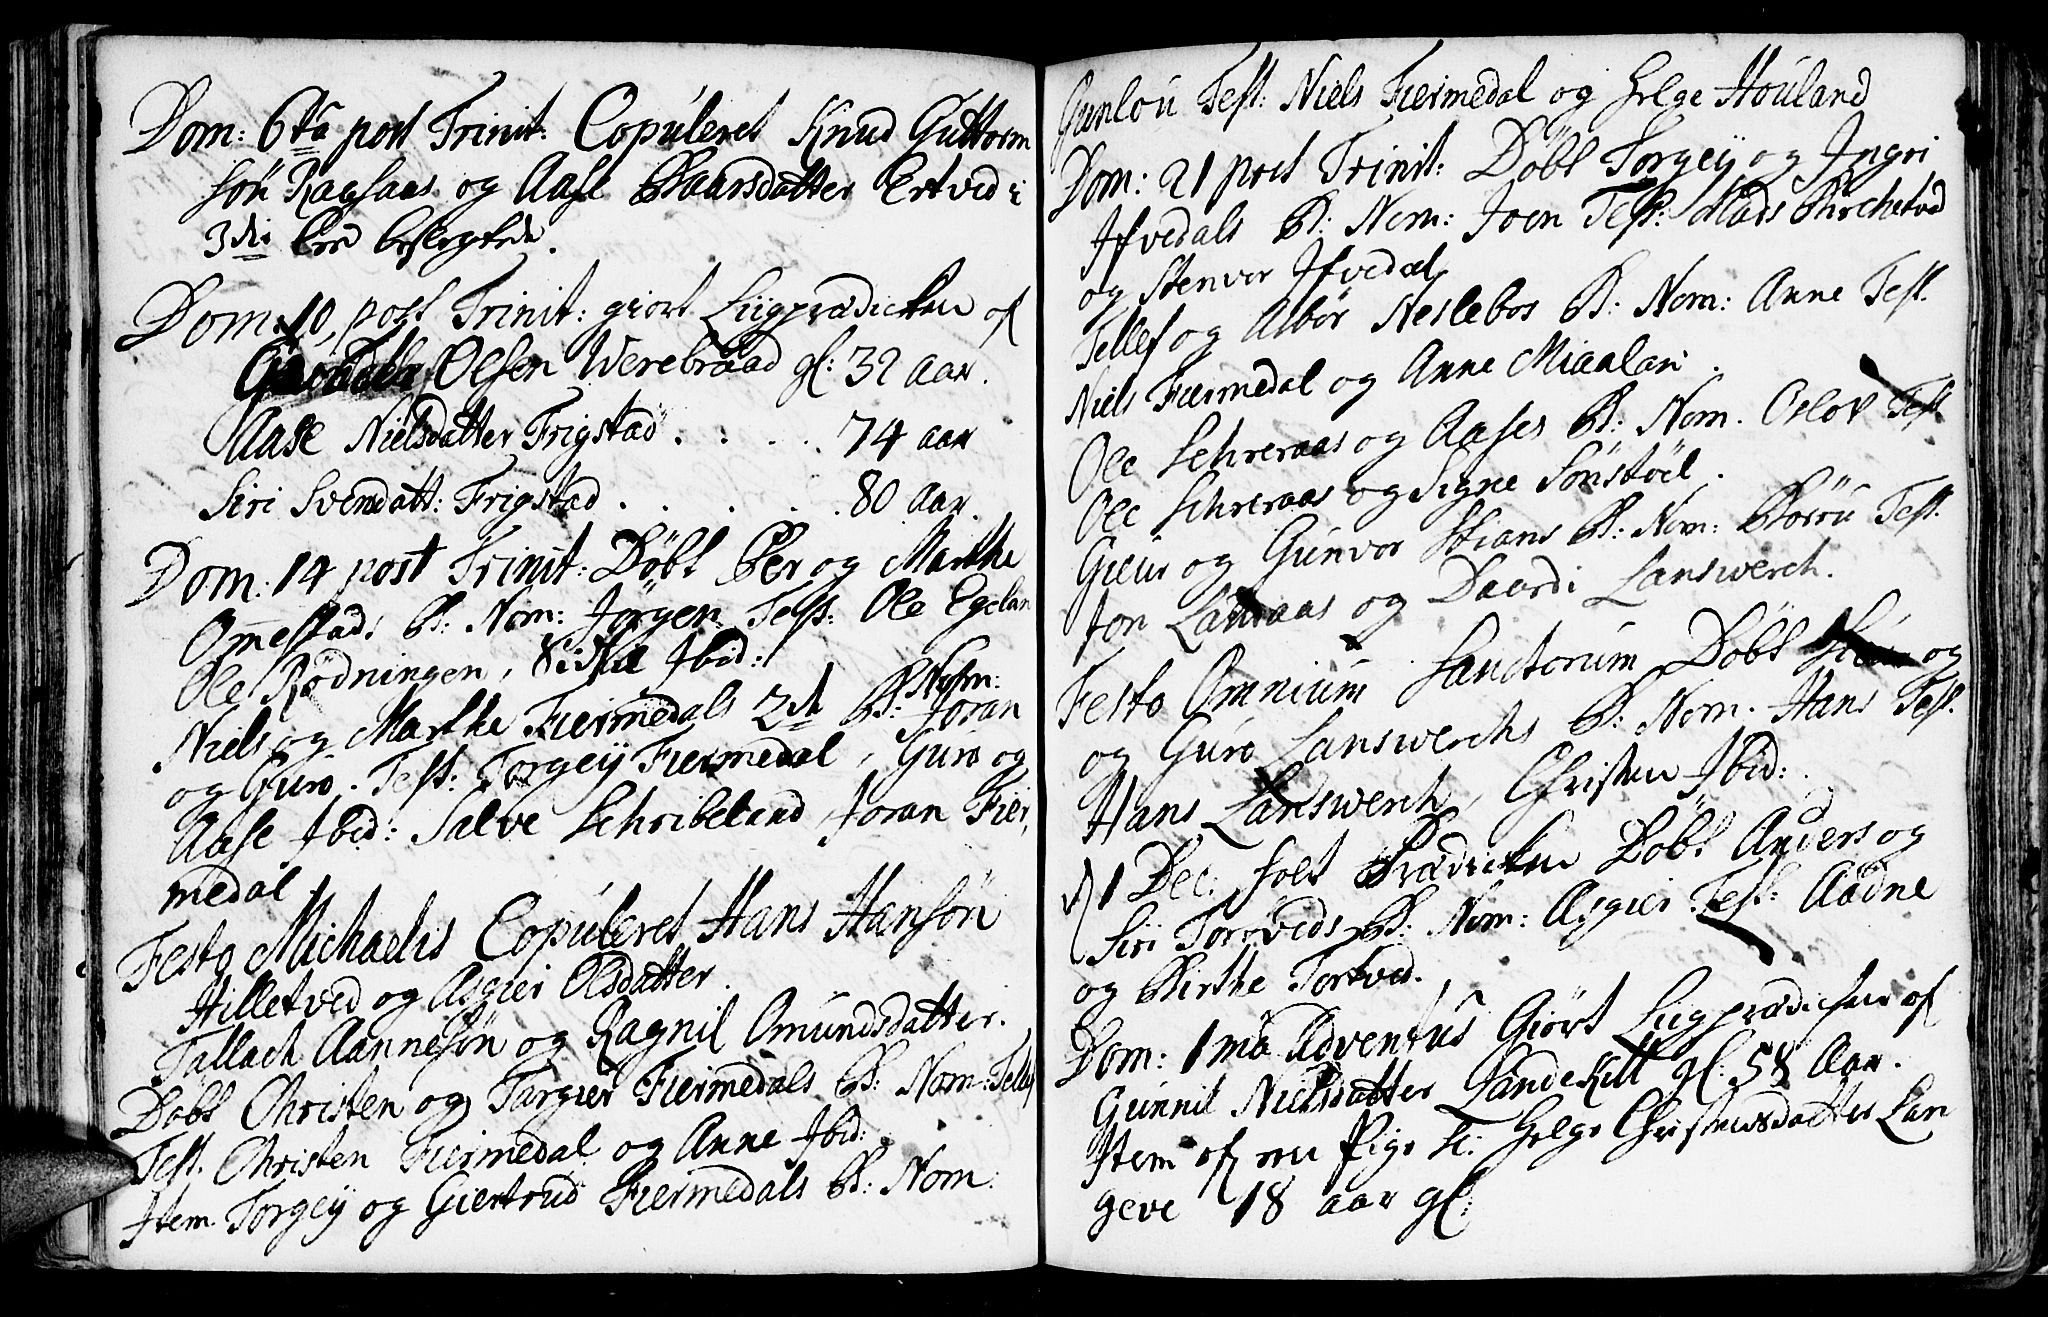 Dom: 6ta post Trinit: Copuleret Knud Guttorm
sön Raasaas og Aase Baarsdatter Ertved i
3die leed beslegtede.
Dom: 10 post Trinit: giort Liigprædicken of
Olsen Werebraad gl: 32 aar.
Aase Nielsdatter Frigstad . . . . 74 aar
Siri Svendatt: Frigstad . . . . 80 aar.
Dom: 14 post Trinit: Döbt Per og Marthe
Omestads B: Nom: Jörgen Test: Ole Egelan
Ole Rödningen, Ibid:
Niels og Marthe Fiermedals 2de B: Nom: Joran
og Guro. Test: Torgeÿ Fiermedal, Guro og
Aase Ibid: Salve Schribeland, Joran Fier,
medal
Festo Michaelis Copuleret Hans Hansön
Hilletved og Asgier Olsdatter.
Tallach Aannesön og Ragnil Omundsdatter.
Döbt Christen og Targier Fiermedals B: Nom: Tellef
Test. Christen Fiermedal og Anne Ibid:
Item Torgeÿ og Giertrud Fiermedals B: Nom:
Gunlou Test: Niels Fiermedal og Helge Houland
Dom: 21 post Trinit: Döbt Torgeÿ og Ingri
Ifvedals B: Nom: Joen Test: Mads Birchetved
og Stenvor Ifvedal
Tellef og Albör Neslebos B: Nom: Anne Test.
Niels Fiermedal og Anne Miaalan.
Ole Schreraas og Aases B: Nom. Oslov Test.
Ole Schreraas og Signe Sönstöel.
Gieur og Gunvor Skians B: Nom: Börou Test.
Jon Lauraas og Daardi Lanswerch.
Festo Omnium Sanctorum Döbt og
og Guro Lanswerchs B: Nom. Hans Test.
Hans Lanswerch, Christen Ibid:
d 1 Dec: holt Prædicken Döbt Anders og
Siri Tortveds B: Nom: Asgier Test: Aadne
og Birthe Tortved.
Dom: 1ma Adventus Giört Liigprædichen of
Gunnil Nielsdatter Landekilt gl: 58 Aar.
Item of en Pige N: Helge Christensdatter Lan
geve 18 aar gl: